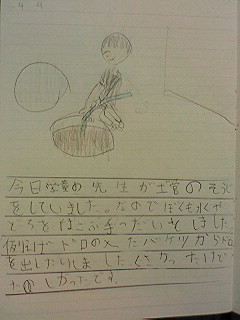 4 4
今日営責め先生が土管のそうじ
をしていました。なのでぼくも水や
どろをはこぶ手つだいをしました
例えばドロの入ったバケツからドロ
を出したりしましたくさかったけど
たのしかったです。